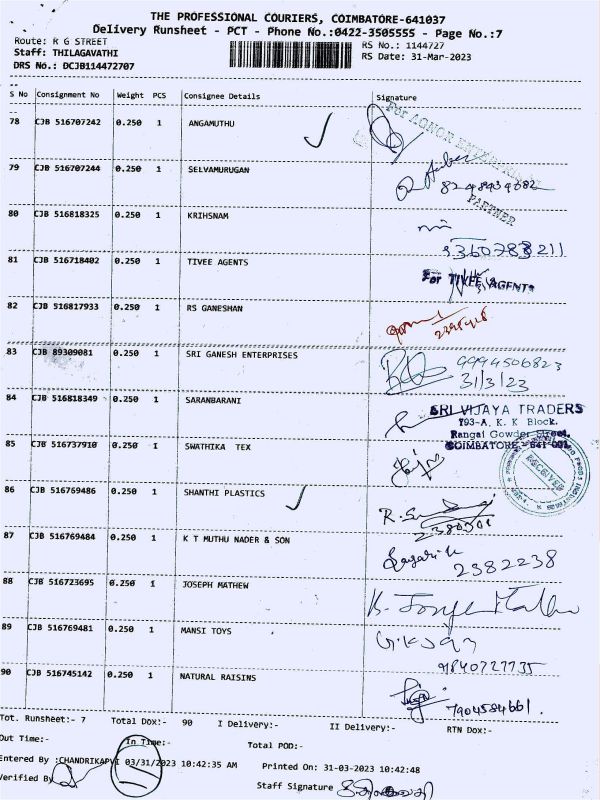 THE PROFESSIONAL COURIERS, COIMBATORE-641037
Delivery Runsheet - PCT - Phone No.:0422-3505555 - Page No.:7
Route: R G STREET
RS No.: 1144727
Staff: THILAGAVATHI
RS Date: 31-Mar-2023
DRS No.: DCJB114472707
S No Consignment No Weight PCS Consignee Details Signature
78 CJB 516707242 0.250 1 ANGAMUTHU
For AGNOR
79 CJB 516707244 0.250 1 SELVAMURUGAN
PARTNER
80 CJB 516818325 0.250 1 KRIHSNAM
9360783211
81 CJB 516718402 0.250 1 TIVEE AGENTS
For TIVEE AGENTS
82 CJB 516817933 0.250 1 RS GANESHAN
83 CJB 89309081 0.250 1 SRI GANESH ENTERPRISES
9994506823
31/3/23
84 CJB 516818349 0.250 1 SARANBARANI
SRI VIJAYA TRADERS
793-A, K. K Block,
Rangai Gowder Street,
COIMBATORE - 641 001.
85 CJB 516737910 0.250 1 SWATHIKA TEX
RECEIVED
86 CJB 516769486 0.250 1 SHANTHI PLASTICS
87 CJB 516769484 0.250 1 K T MUTHU NADER & SON
2382238
88 CJB 516723695 0.250 1 JOSEPH MATHEW
89 CJB 516769481 0.250 1 MANSI TOYS
9840727735
90 CJB 516745142 0.250 1 NATURAL RAISINS
7904584661.
Tot. Runsheet:- 7 Total Dox:- 90 I Delivery:- II Delivery:- RTN Dox:-
Out Time:- In Time:- Total POD:-
Entered By :CHANDRIKAPVI 03/31/2023 10:42:35 AM Printed On: 31-03-2023 10:42:48
Verified By
Staff Signature